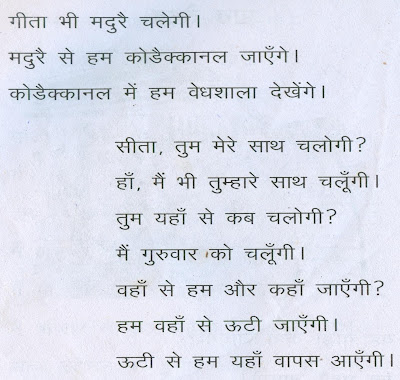 गीता भी मदुरै चलेगी।
मदुरै से हम कोडैक्कानल जाएँगे।
कोडैक्कानल में हम वेधशाला देखेंगे।
सीता, तुम मेरे साथ चलोगी?
हाँ, मैं भी तुम्हारे साथ चलूँगी।
तुम यहाँ से कब चलोगी?
मैं गुरुवार को चलूँगी।
वहाँ से हम और कहाँ जाएँगी?
हम वहाँ से ऊटी जाएँगी।
ऊटी से हम यहाँ वापस आएँगी।